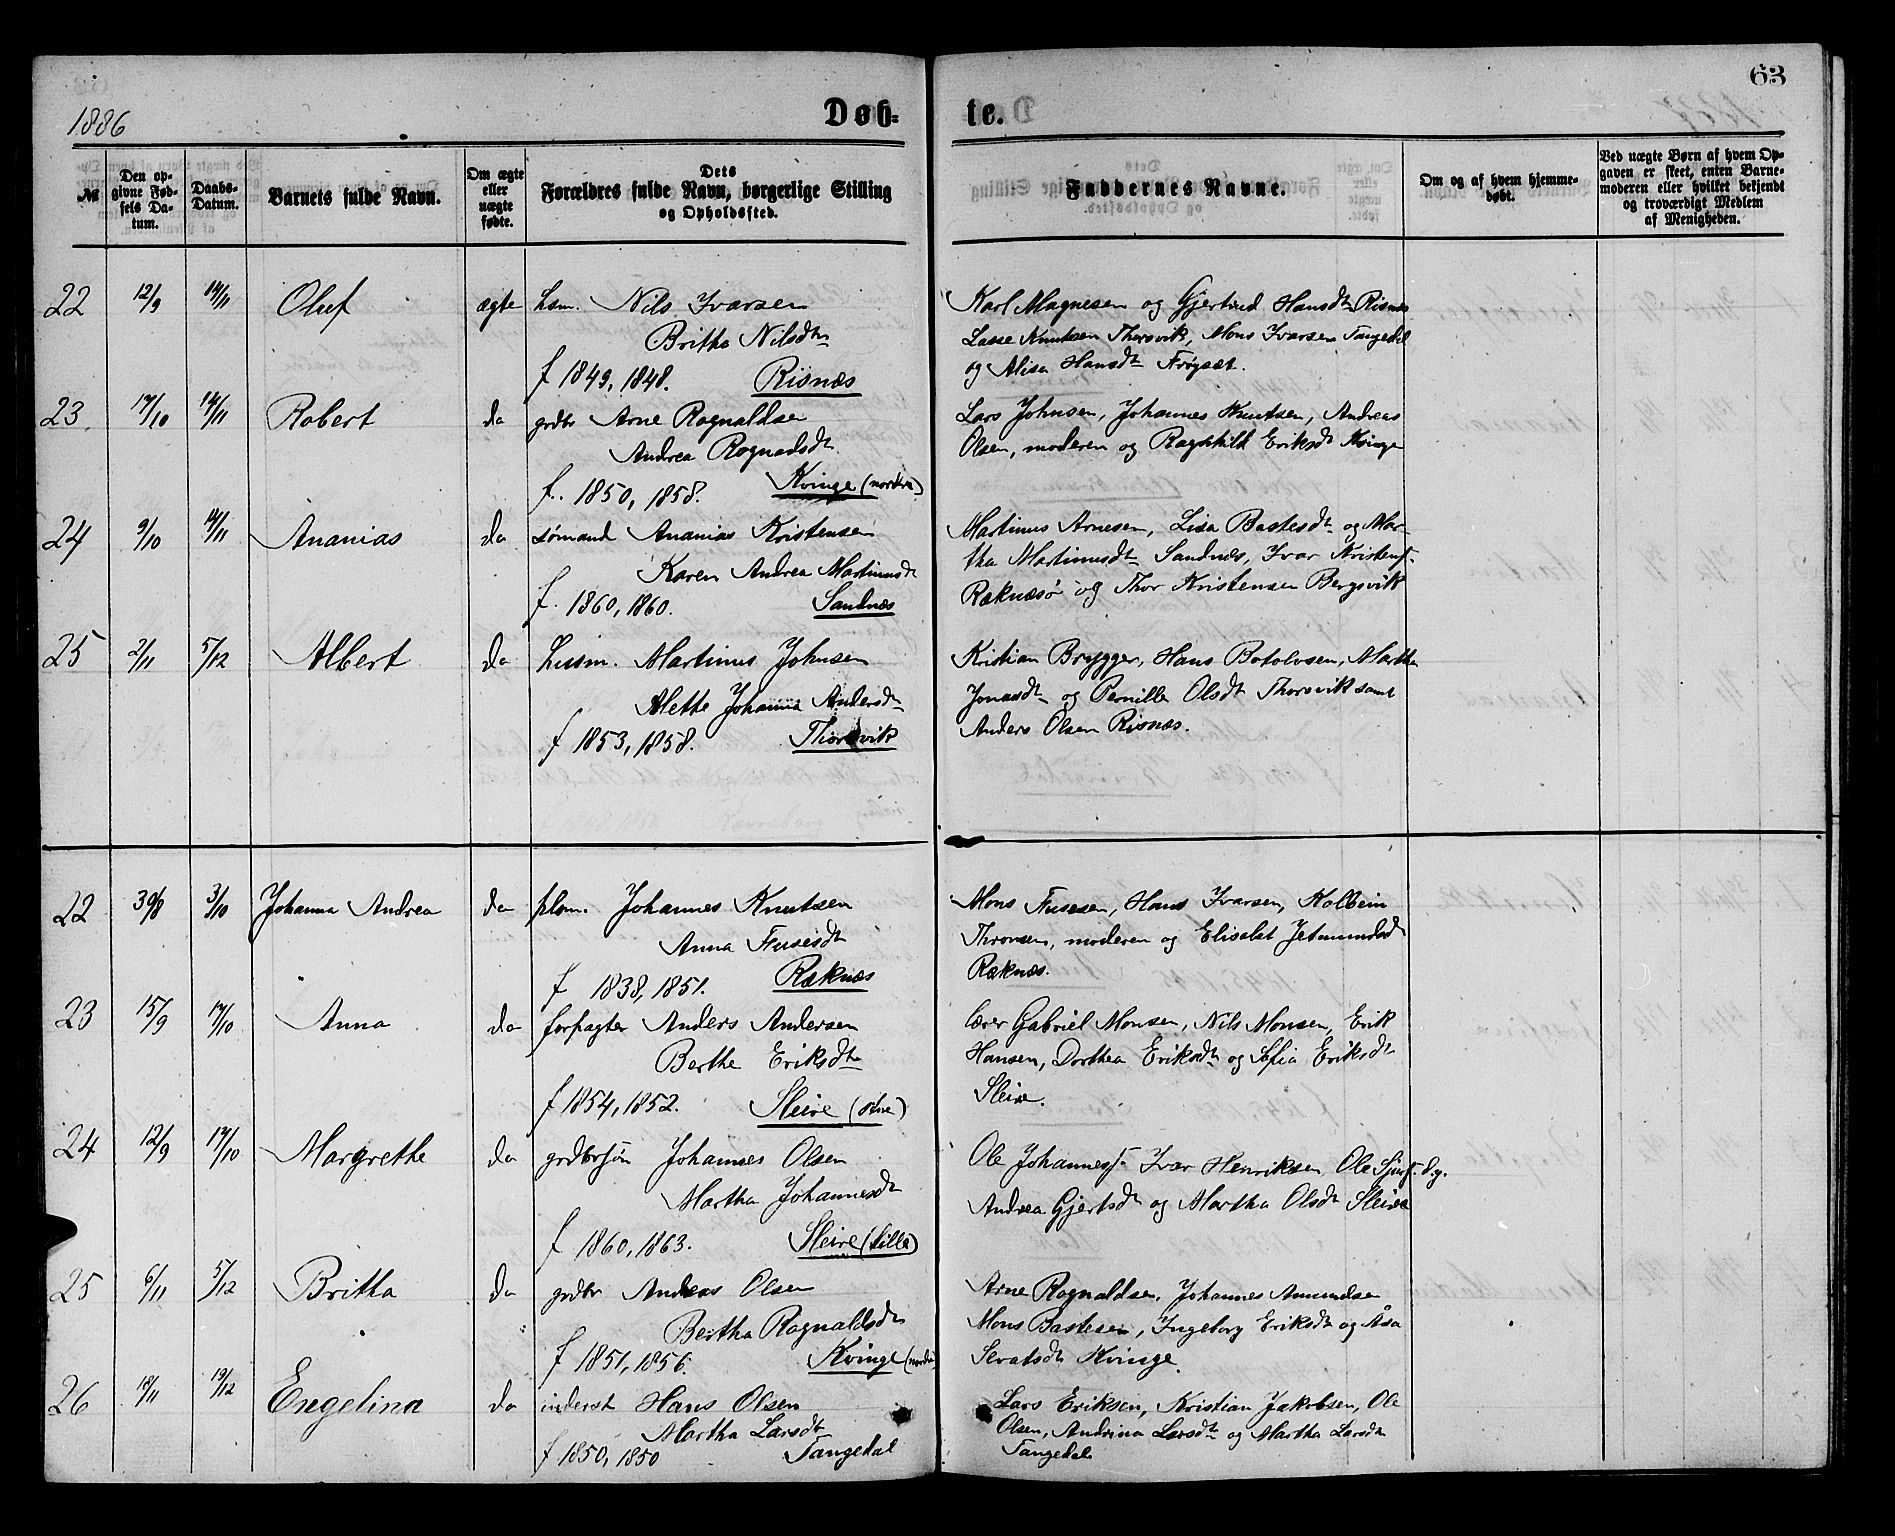 63
1886
Døb-
te.
№
Den op-
givne Fød-
sels Da-
tum.
Daabs-
Datum.
Barnets fulde Navn.
Om ægte
eller
uægte
fødte.
Dets
Forældres fulde Navn, borgerlige Stilling
og Opholdssted.
Faddernes Navne.
Om og af hvem hjemme-
døbt.
Ved uægte Børn af hvem Op-
gaven er skeet, enten Barne-
moderen eller hvilket bekjendt
og troværdigt Medlem
af Menigheden.
22 12/9 14/11 Oluf ægte hsm. Nils Ivarsen
Britha Nilsdtr
f 1849, 1848. Risnæs
Karl Magnesen og Gjertrud Hansdtr Risnæs
Lasse Knutsen Thorsvik, Mons Ivarsen Tangedal
og Alisa Hansdtr Frøyset.
23. 17/10 14/11 Robert do grdbr Arne Ragnaldsen
Andrea Rognadsdtr
f. 1850, 1858. Kvinge (nordre)
Lars Johnsen, Johannes Knutsen, Andreas
Olsen, moderen og Ragnhild Eriksdtr Kvinge
24 9/10 14/11 Ananias do sømand Ananias Kristensen
Karen Andrea Martinusdtr
f. 1860, 1860. Sandnæs
Martinus Arnesen, Lisa Bastesdtr og Mar-
tha Martinusdtr Sandnæs, Ivar Kristens.
Ræknæsø og Thor Kristensen Bergsvik
25 2/11 5/12 Albert do husm. Martinus Johnsen
Alette Johanna Andersdtr
f 1853, 1858. Thorsvik
Kristian Brygger, Hans Botolvsen, Martha
Jonasdtr og Pernille Olsdtr Thorsvik samt
Anders Olsen Risnæs.
22 30/8 3/10 Johanna Andrea do plsm. Johannes Knutsen
Anna Fusesdtr
f 1838, 1851. Ræknæs
Mons Fusesen, Hans Ivarsen, Kolbein
Thronsen, moderen og Elisabet Jetmundsdtr
Ræknæs.
23 15/9 17/10 Anna do forpagter Anders Andersen
Berthe Eriksdtr
f 1854, 1852. Sleire (øvre)
lærer Gabriel Monsen, Nils Monsen, Erik
Hansen, Dorthea Eriksdtr og Sofia Eriksdtr
Sleire.
24 12/9 17/10 Margrethe do grdbrsøn Johannes Olsen
Martha Johannesdtr
f 1860, 1863. Sleire (lille)
Ole Johannes. Ivar Henriksen Ole
Andrea Gjertsdtr og Martha Olsdtr Sleire
25 6/11 5/12 Britha do grdbr Andreas Olsen
Bertha Ragnaldsdtr
f 1851, 1856. Kvinge (nordre)
Arne Ragnaldsen, Johannes Amundsen
Mons Bastesen, Ingeborg Eriksdtr og Åsa
Sevatsdtr Kvinge.
26 18/11 19/12 Engelina do inderst Hans Olsen
Martha Larsdtr
f 1850, 1850 Tangedal
Lars Eriksen, Kristian Jakobsen, Ole
Olsen, Andrina Larsdtr og Martha Larsdtr
Tangedal